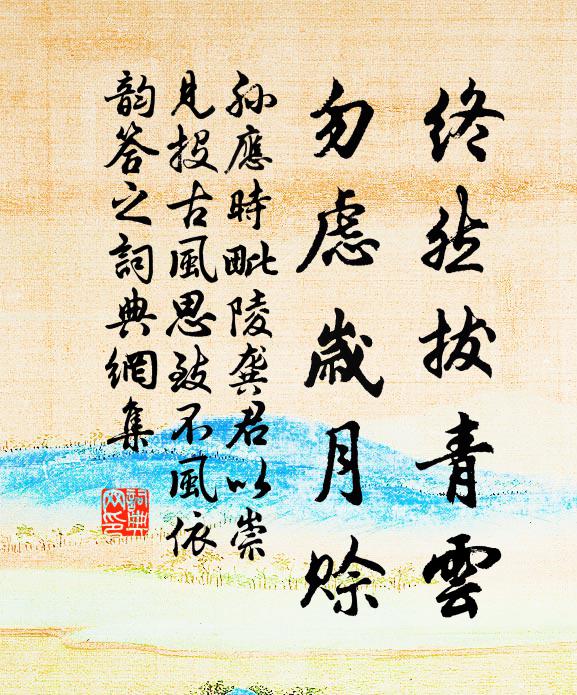 終然拔青雲
勿慮歲月賒
孫應時毗陵龔君以崇
見投古風思致不風依
韵答之詞典網集
詞典
印